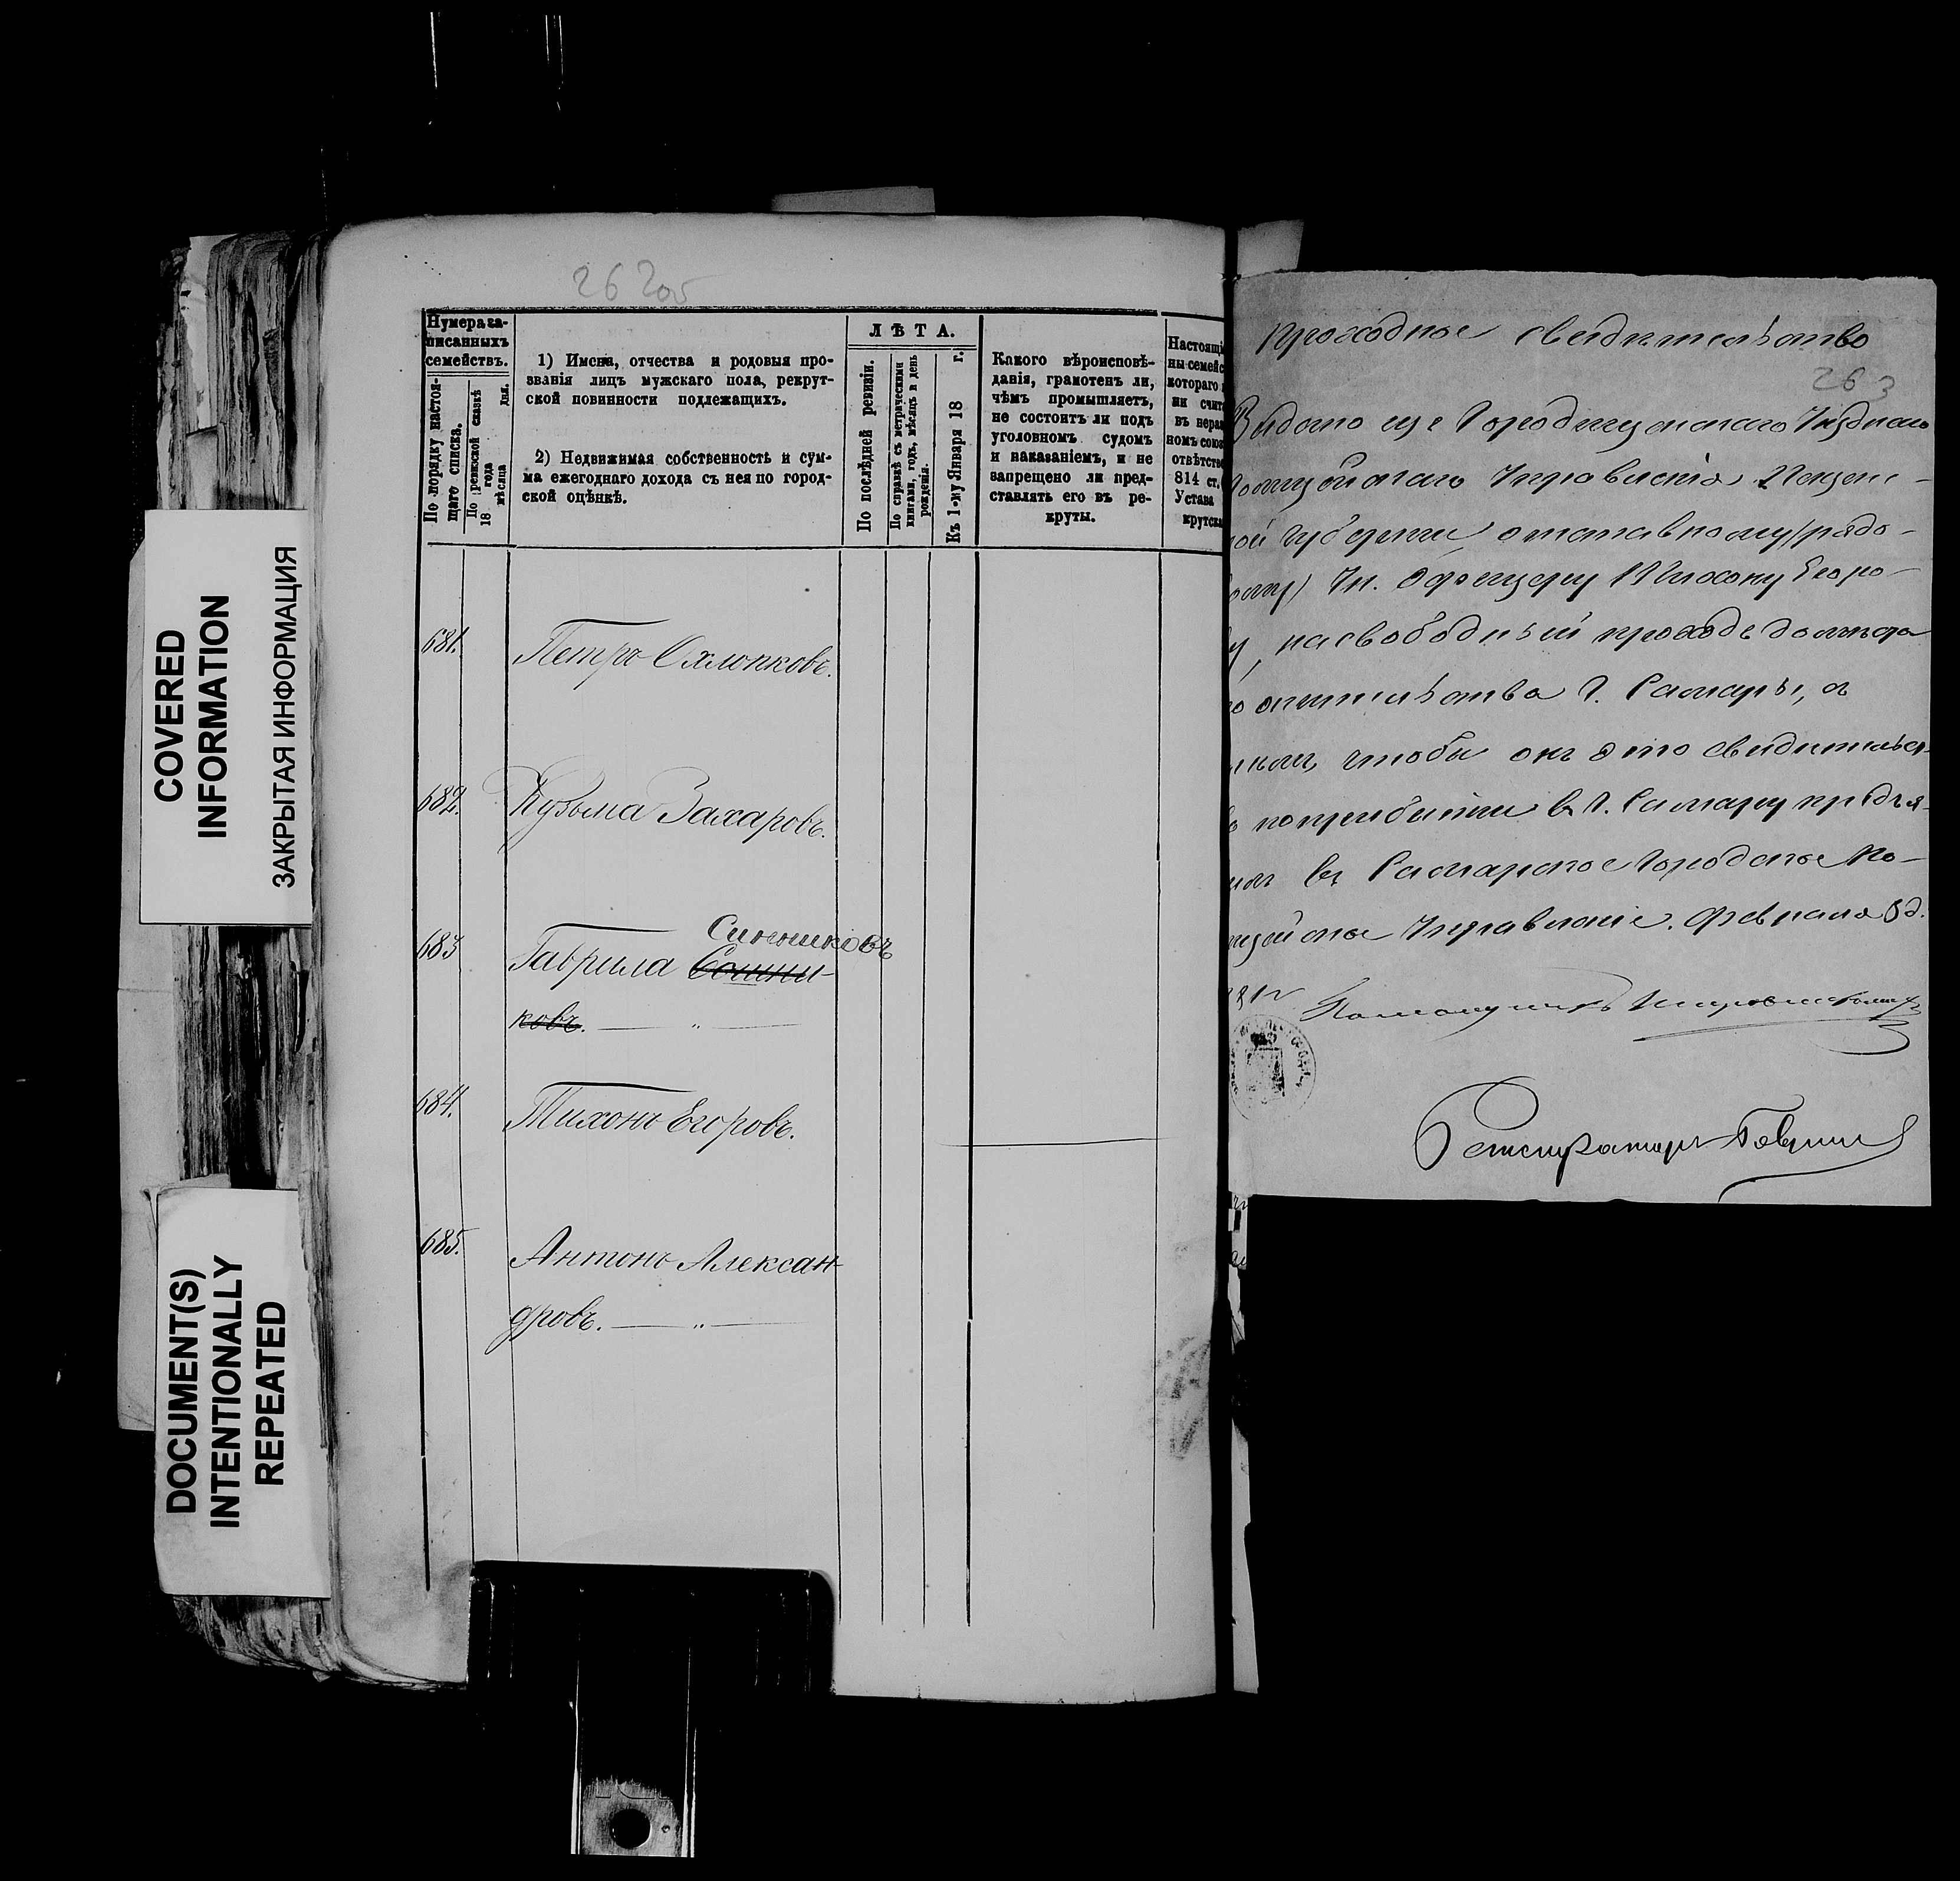 COVERED
INFORMATION
ЗАКРЫТАЯ ИНФОРМАЦИЯ
DOCUMENT(S)
INTENTIONALLY
REPEATED
262об
Нумера за-
писанныхъ
семействъ.
По порядку настоя-
щаго списка.
По ревизской сказкѣ
18 года
мѣсяца дня.
1) Имена, отчества и родовыя про-
званія лицъ мужскаго пола, рекрут-
ской повинности подлежащихъ.
2) Недвижимая собственность и сум-
ма ежегоднаго дохода съ нея по город-
ской оцѣнкѣ.
ЛѢТА.
По послѣдней ревизіи.
По справкѣ съ метрическими
книгами, годъ, мѣсяцъ и день
рожденія.
Къ 1-му Января 18 г.
Какого вѣроисповѣ-
данія, грамотенъ ли,
чѣмъ промышляетъ,
не состоитъ ли подъ
уголовномъ судомъ
и наказаніемъ, и не
запрещено ли пред-
ставлять его въ ре-
круты.
Настоящі
ны семейс
котораго
ли счит
въ нераз
номъ союз
отвѣтств
814 ст.
Устава
крутск
681. Петръ Охлопковъ.
682. Кузьма Захаровъ.
683 Гаврила Сошни- Синншковъ
ковъ. — „ —
684. Тихонъ Егоровъ.
685. Антонъ Алексан-
дровъ. — „ —
Проходное свидѣтельство
263
Выдано изъ Городищенскаго Уѣзднаго
Полицейскаго Управленія Пензен-
ой Губерніи, отставному (рядо-
вому) Ун. Офицеру Тихону Егоро-
у, на свободный проходъ до мѣста
о жительства г. Самары, съ
тѣмъ, чтобы онъ это свидѣтельст-
о по прибытіи въ г. Самару предъя-
илъ въ Самарское Городское По-
лицейское Управленіе. Февраля 8 д.
Помощникъ
Регистраторъ